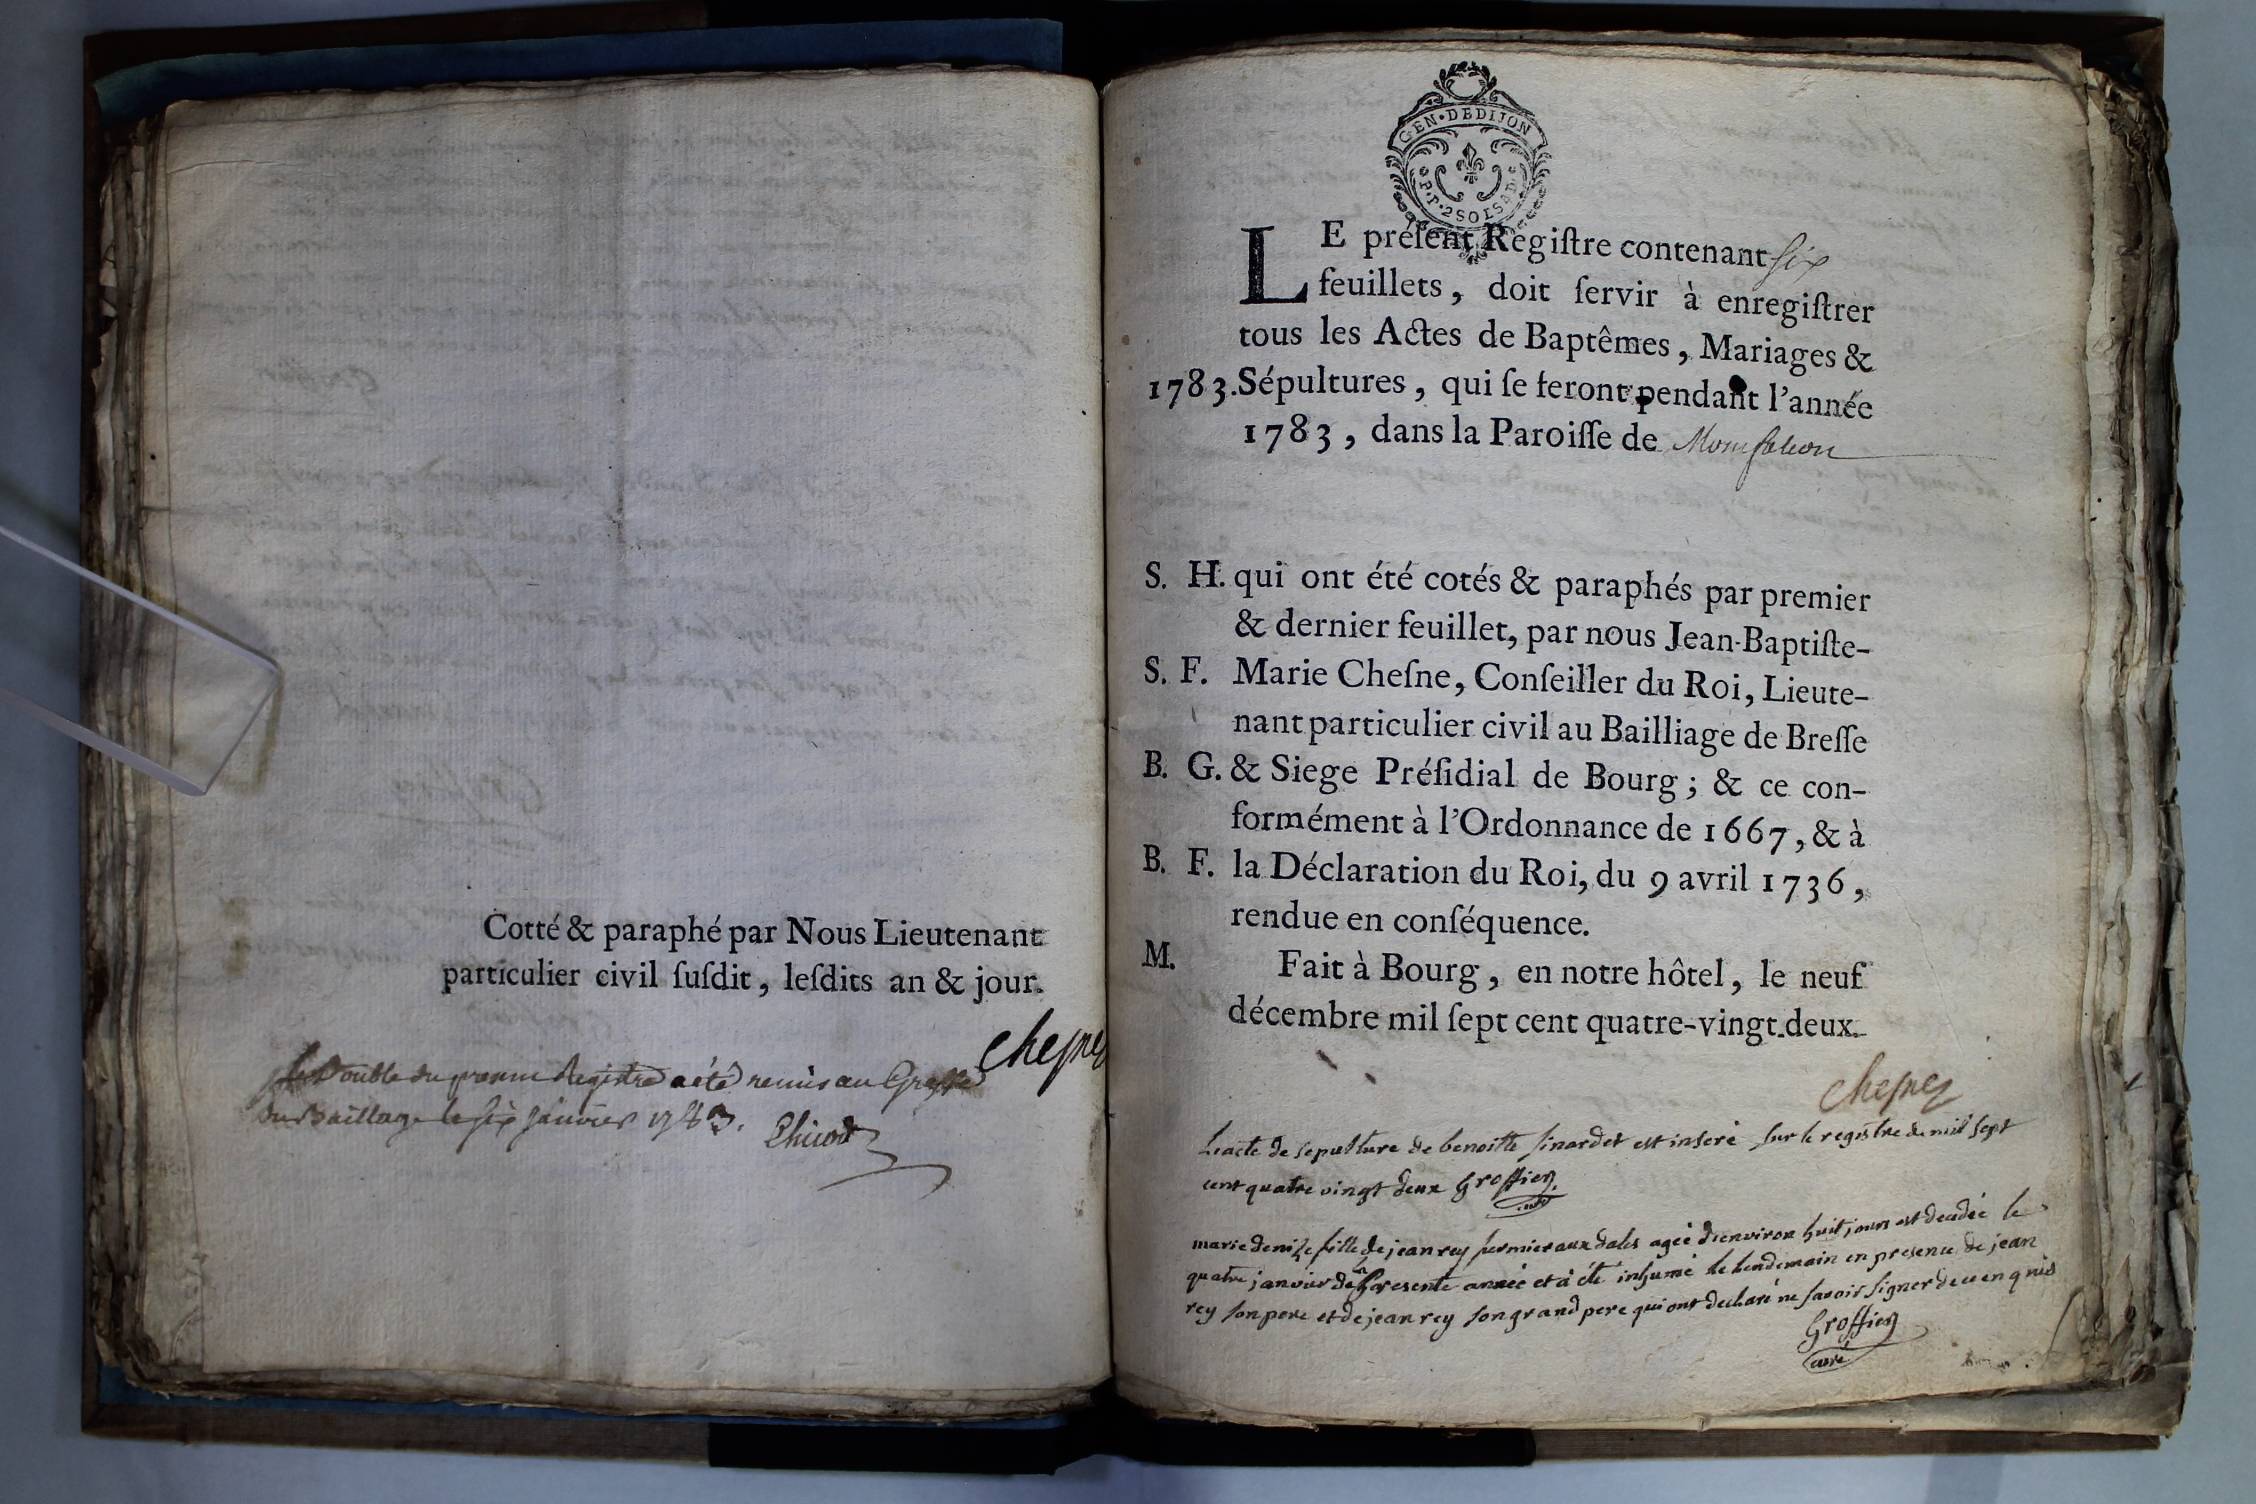 Cotté & paraphé par Nous Lieutenant
particulier civil ſuſdit, leſdits an & jour.
Cheſne
le Double du preſent Regiſtre a été remis au Greffe
du Baillage le ſix Janvier 1783.
GEN·DEDIJON
P·P·2SOLS
LE préſent Regiſtre contenant ſix
feuillets, doit ſervir à enregiſtrer
tous les Actes de Baptêmes, Mariages &
1783. Sépultures, qui ſe feront pendant l'année
1783, dans la Paroiſſe de
S. H. qui ont été cotés & paraphés par premier
& dernier feuillet, par nous Jean-Baptiſte-
S. F. Marie Cheſne, Conſeiller du Roi, Lieute-
nant particulier civil au Bailliage de Breſſe
B. G. & Siege Préſidial de Bourg ; & ce con-
formément à l'Ordonnance de 1667, & à
B. F. la Déclaration du Roi, du 9 avril 1736,
rendue en conſéquence.
M. Fait à Bourg, en notre hôtel, le neuf
décembre mil ſept cent quatre-vingt-deux.
Cheſne
L'acte de sepulture de benoitte ſinardet est inseré ſur le registre de mil ſept
cent quatre vingt deux Groffier
curé
marie deniſe fille de jean rey fermier aux dales ageé d'environ huit jours est decedeé le
quatre janvier de la preſente anneé et a eté inhumé le lendemain en presence de jean
rey ſon pere et de jean rey ſon grand pere qui ont declaré ne ſavoir ſigner de ce enquis
Groffier
curé